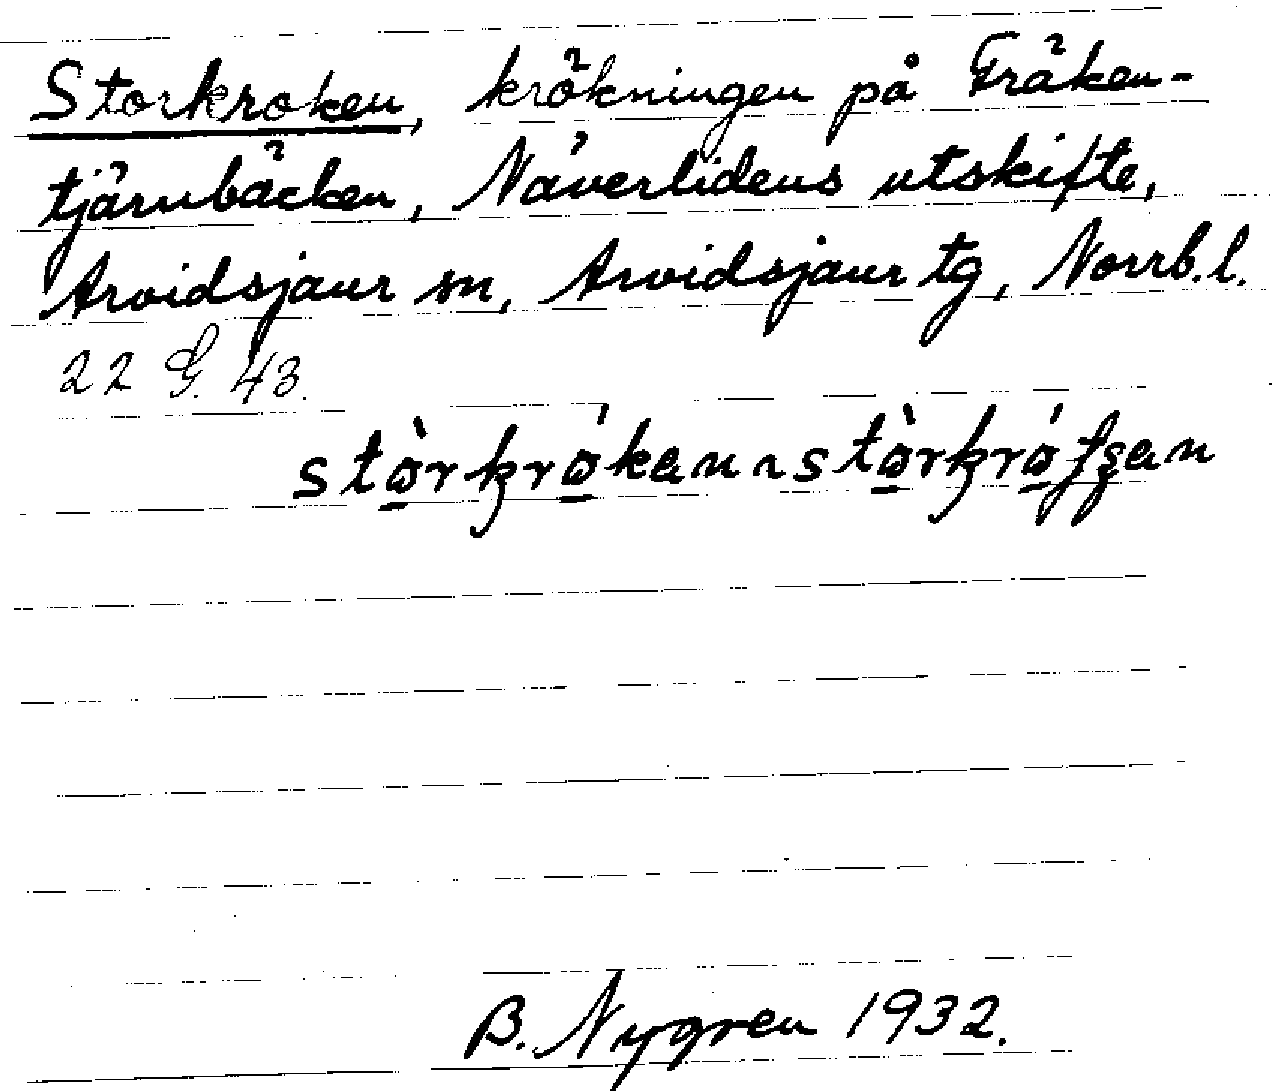 Storkroken, krökningen på Fräken-
tjärnbäcken, Näverlidens utskifte,
Arvidsjaur sn, Arvidsjaur tg, Norrb. l.
22 G. 43.
B. Nygren 1932.